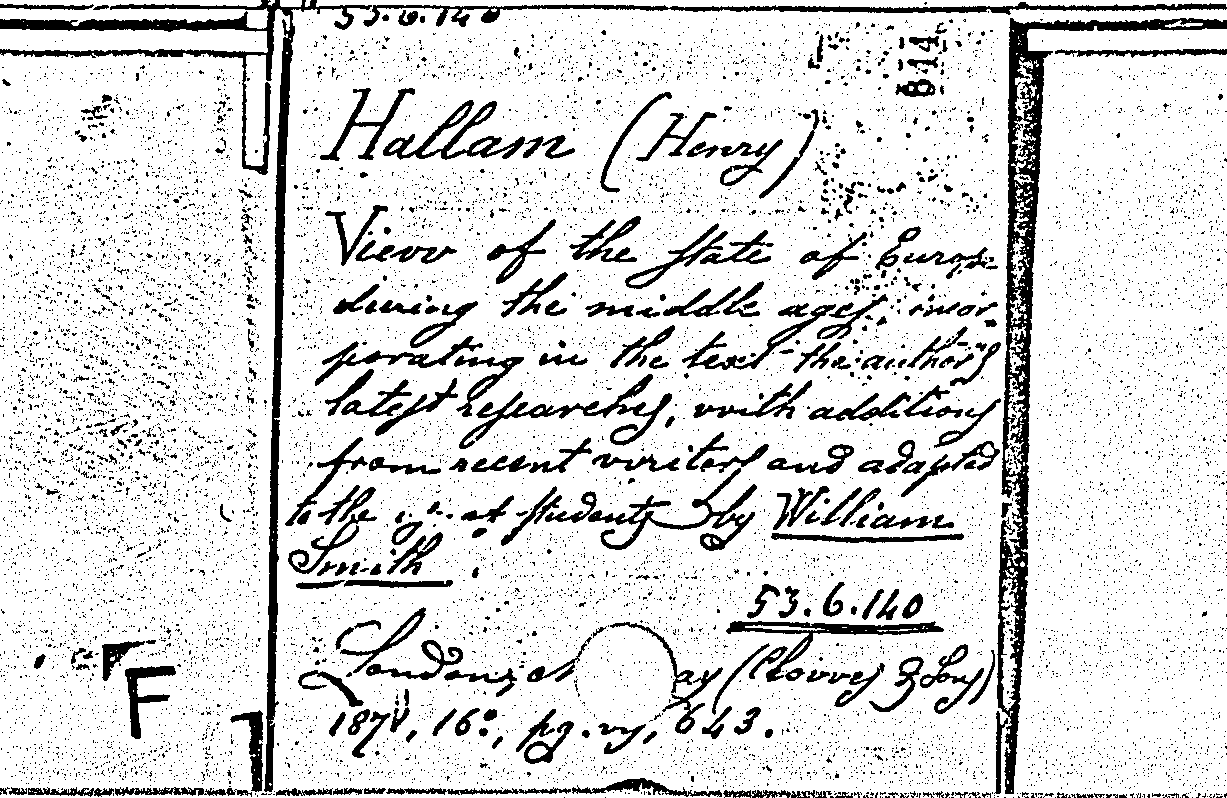 53.6.140
844
Hallam (Henry)
View of the state of Europe
during the middle ages, incor-
porating in the text the author's
latest researches, with additions
from recent writers and adapted
to the of students by William
Smith.
53.6.140
London, ay (Clowes & Sons)
1871, 16°, pg. vij, 643.
F